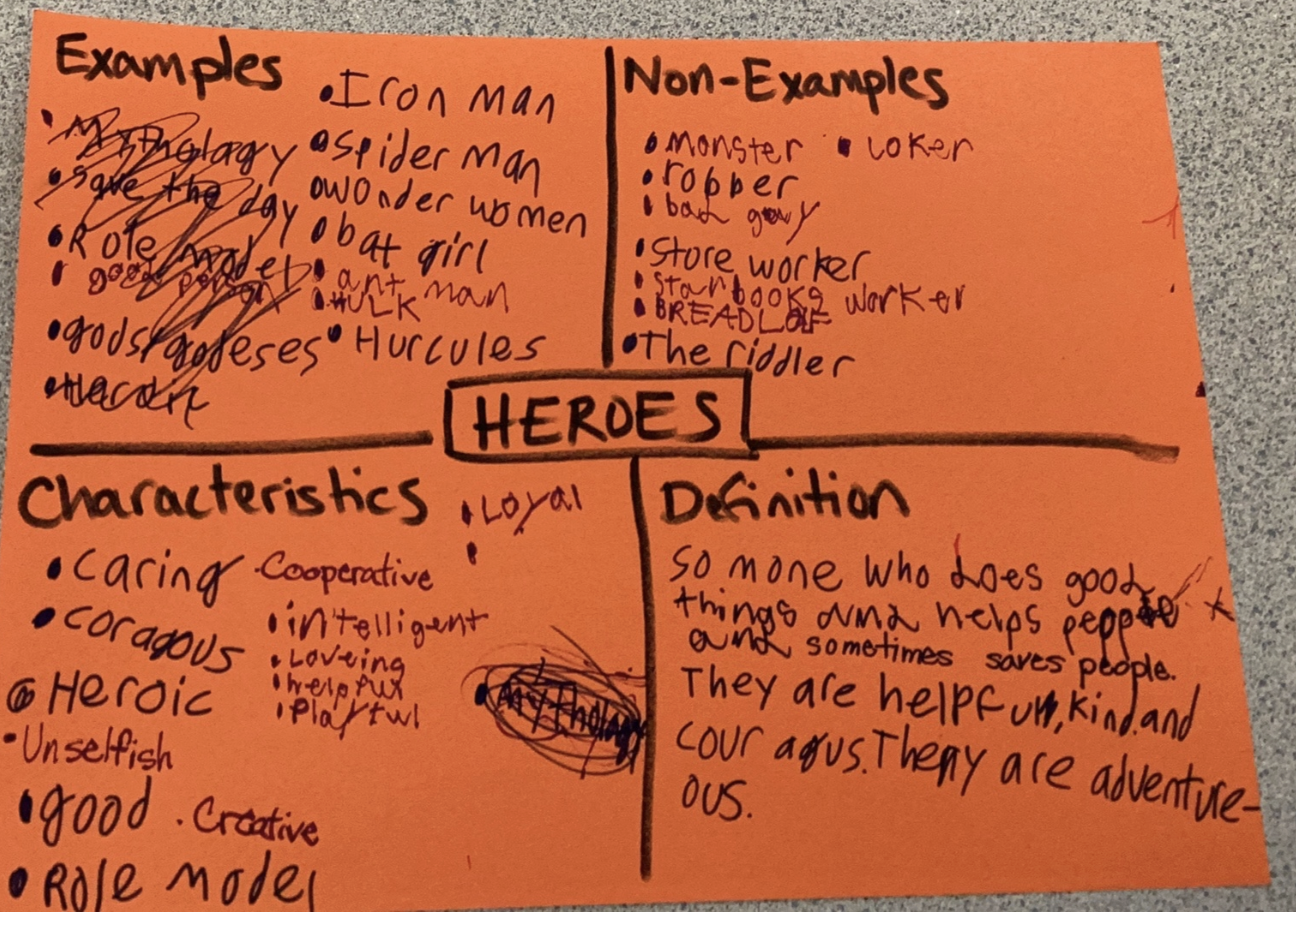 Examples
• Iron man
• Mythology
• Spider man
• Save the day
• wonder women
• Role model
• bat girl
• good person
• ant man
• HULK
• gods/godeses
• Hurcules
Non-Examples
• monster • LOKER
• robber
• bad guy
• Store worker
• Starbooks worker
• BREADLOF
• The riddler
HEROES
Characteristics
• Loyal
• caring
- Cooperative
• coragous
• intelligent
• Loveing
• Heroic
• helpful
• Playful
• Unselfish
• Mythology
• good
. Creative
• Role model
Definition
So mone who does good
things and helps people
and sometimes saves people.
They are helpful, kind and
cour agus. They are adventure-
ous.